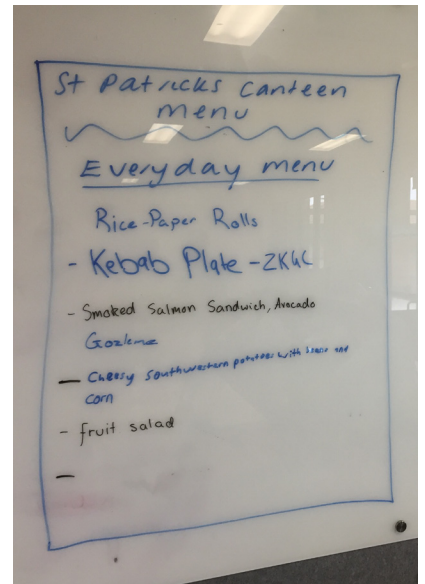 St Patricks Canteen
menu
Everyday menu
Rice-Paper Rolls
- Kebab Plate -
- Smoked Salmon Sandwich, Avocado
Gozleme
- Cheesy Southwestern potatoes with and
corn
- fruit salad
-